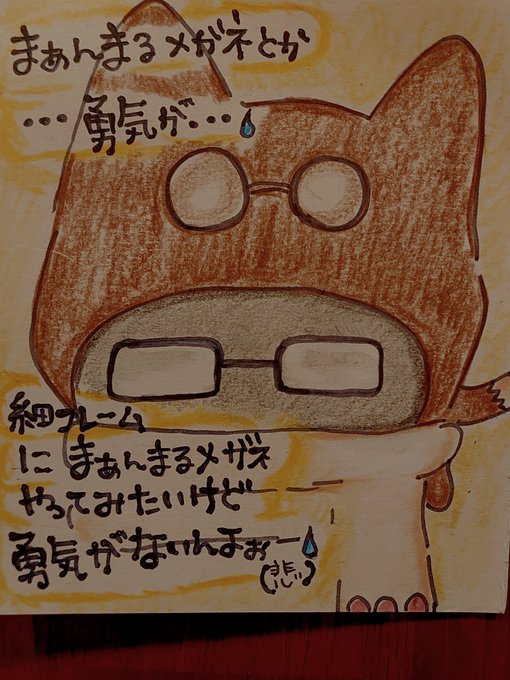 まぁんまるメガネとか
・・・勇気が・・・
細フレーム
に まぁんまるメガネ
やってみたいけど
勇気がないんよぉー
(悲)